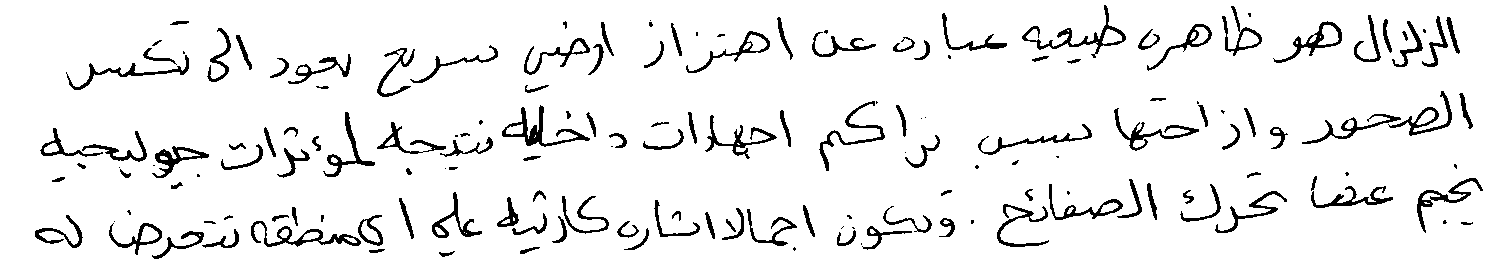 الزلزال هو ظاهره طبيعيه عباره عن اهتزاز ارضي سريع يعود الى تكسر
الصخور وازاحتها بسبب تراكم اجهادات داخليه نتيجه لمؤثرات جيولوجيه
ينجم عنها تحرك الصفائح . وتكون اجمالا اثاره كارثيه علي اي منطقه تتعرض له